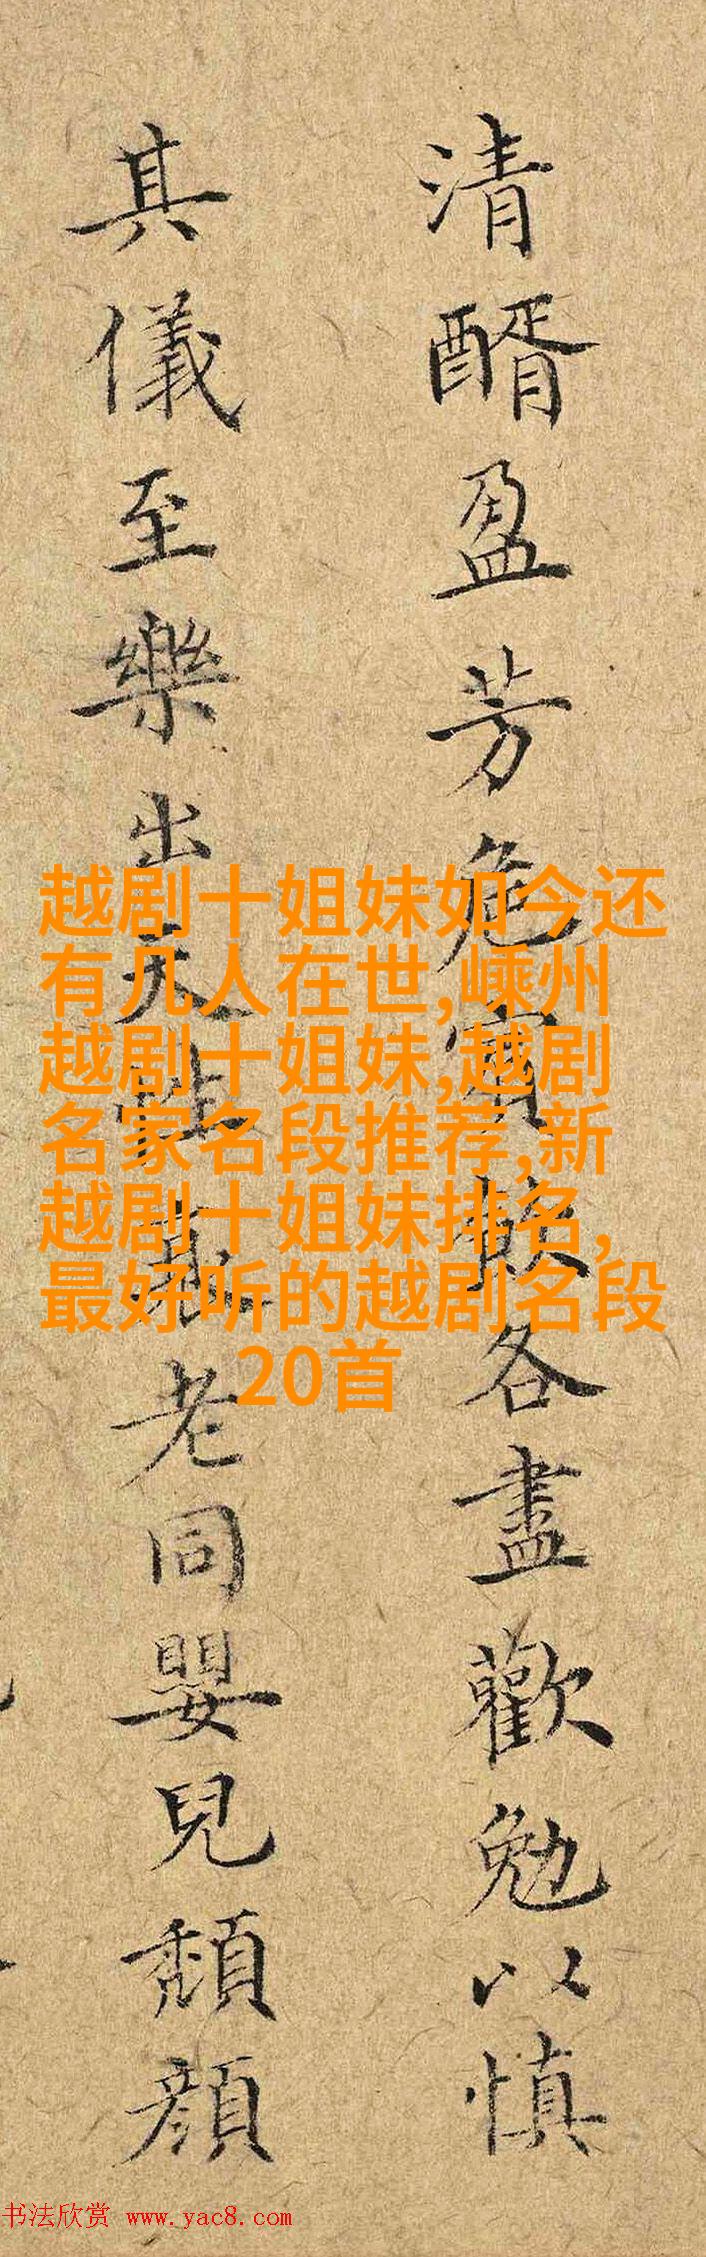 清醑盈芳危賓歡各盡歡勉以慎
其儀至樂出天性戴老同嬰兒頽顔
越剧十姐妹如今还
有几人在世,嵊州
越剧十姐妹,越剧
名家名段推荐,新
越剧十姐妹排名,
最好听的越剧名段
20首
书法欣赏 www.yac8.com